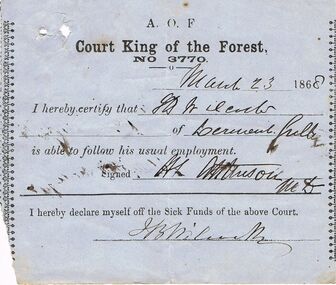 A. O. F
Court King of the Forest,
NO 3770.
March 23 1868
I hereby certify that
of
is able to follow his usual employment.
Signed Atkinson
M D
I hereby declare myself off the Sick Funds of the above Court.